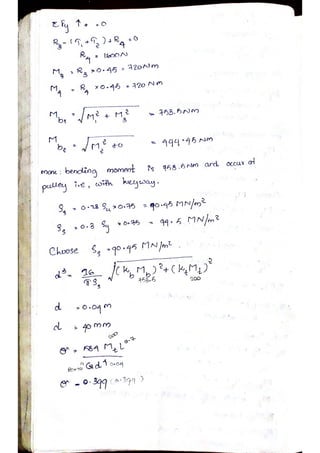 Σ Fy ↑+ = 0
R3 - (T1 + T2) + R4 = 0
R4 = 1600 N
M3 = R3 × 0.45 = 720 Nm
M4 = R4 × 0.45 = 720 Nm
Mb1 = √(M1² + M3²) = 753.5 Nm
Mb2 = √(M2² + 0) = 499.45 Nm
max: bending moment is 753.5 Nm and occur at
pulley i.e, with keyway.
Ss = 0.18 Su × 0.75 = 90.45 MN/m²
Ss = 0.3 Sy × 0.75 = 99.5 MN/m²
Choose Ss = 90.45 MN/m²
d³ = 16/πSs √((kb Mb)² + (kt Mt)²)
d = 0.04 m
d = 40 mm
θ = 584 Mt L / G d⁴
θ = 0.399